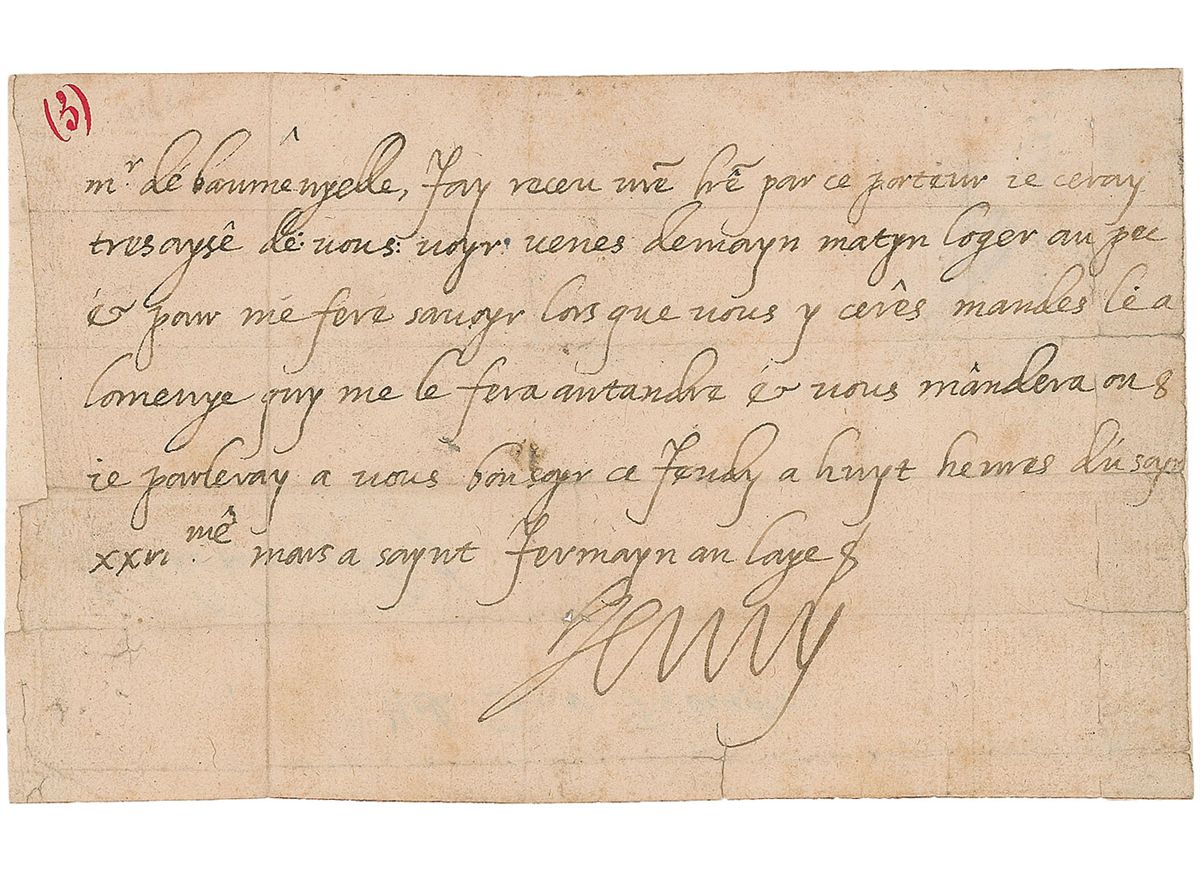 (3)
mr. de baumenyelle, Jay receu vre lre par ce porteur ie ceray
tresayse de vous voyr venes demayn matyn loger au pec
& pour me fere savoyr lors que vous y cerês mandes le a
lomenye quy me le fera antandre & vous mandera ou
ie parleray a vous bonsoyr ce Jeudy a huyt heures du soyr
xxvi me mars a saynt Jermayn an laye
Henry